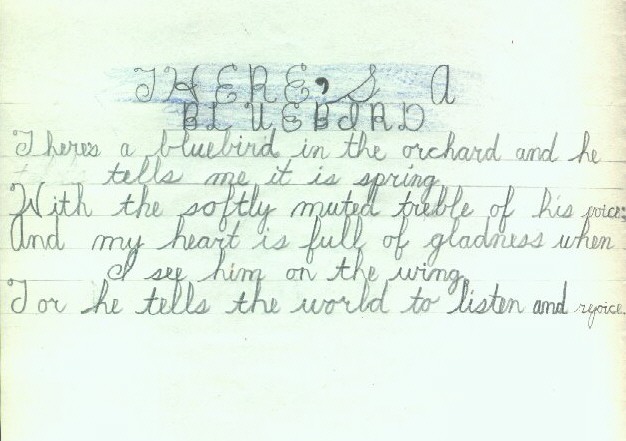 THERE'S A
BLUEBIRD
Theres a bluebird in the orchard and he
tells me it is spring
With the softly muted treble of his voice;
And my heart is full of gladness when
I see him on the wing
For he tells the world to listen and rejoice.